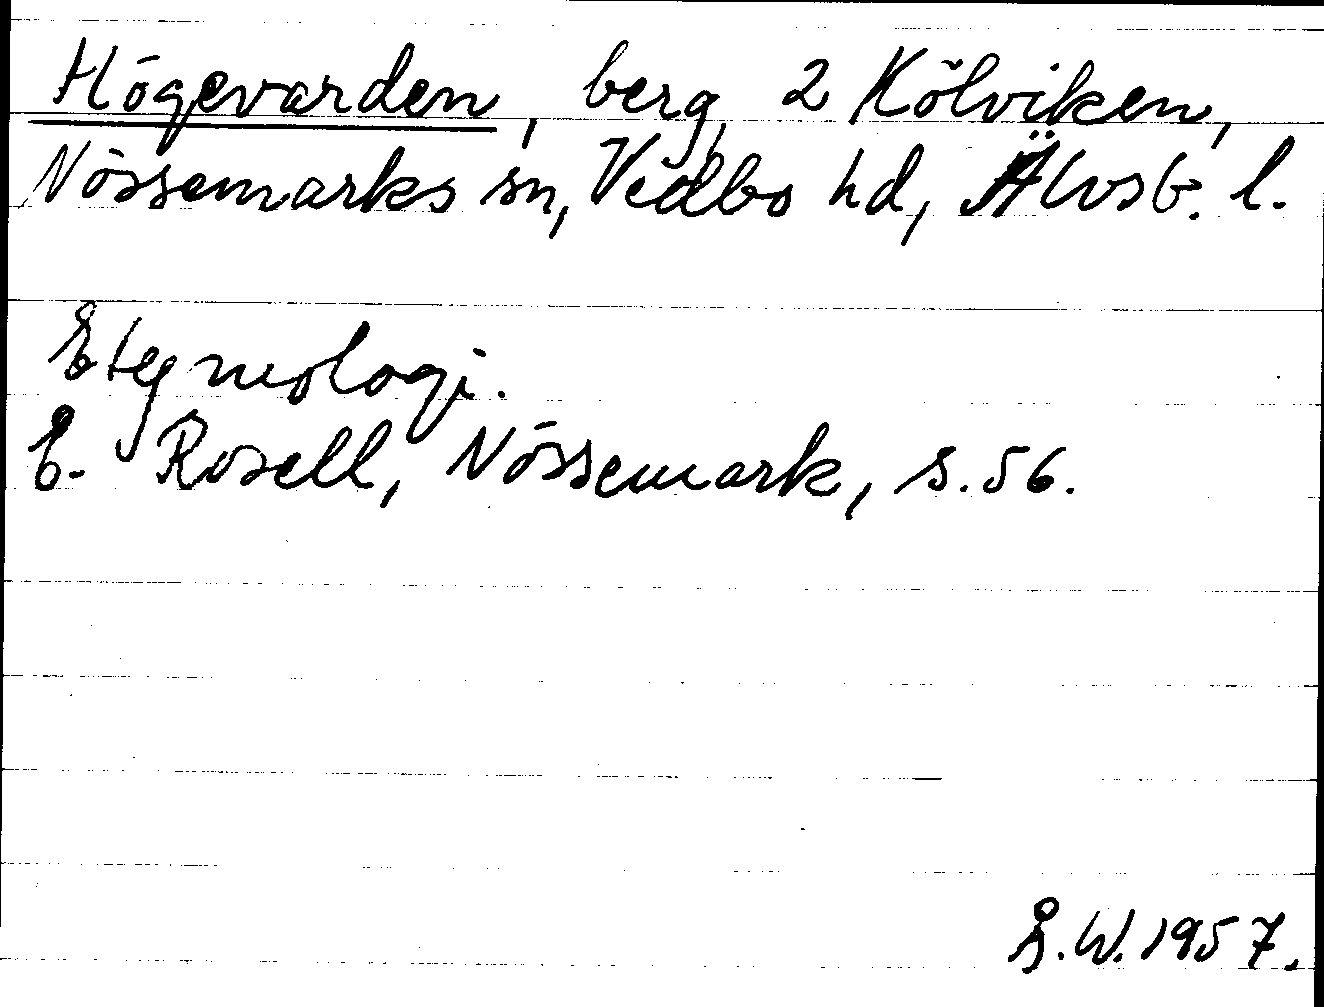 Högevarden, berg, 2 Kölviken,
Nössemarks sn, Vedbo hd, Älvsb. l.
Etymologi.
E. Rosell, Nössemark, s. 56.
Å.W. 1957.